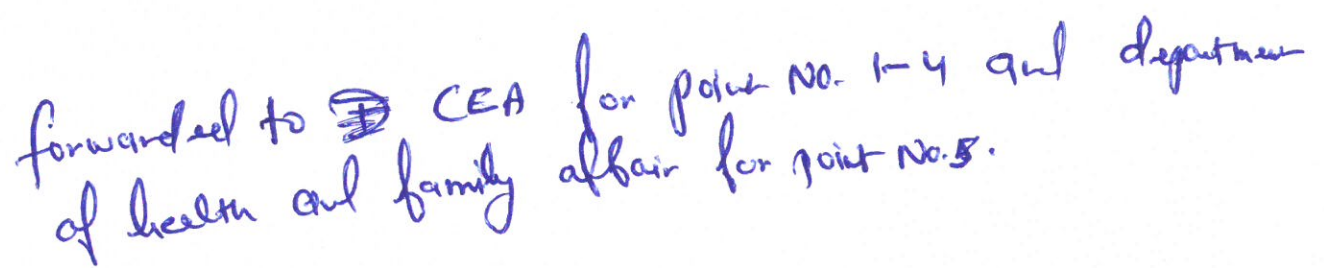 forwarded to CEA for point No. 1-4 and department
of health and family affair for point No.5.